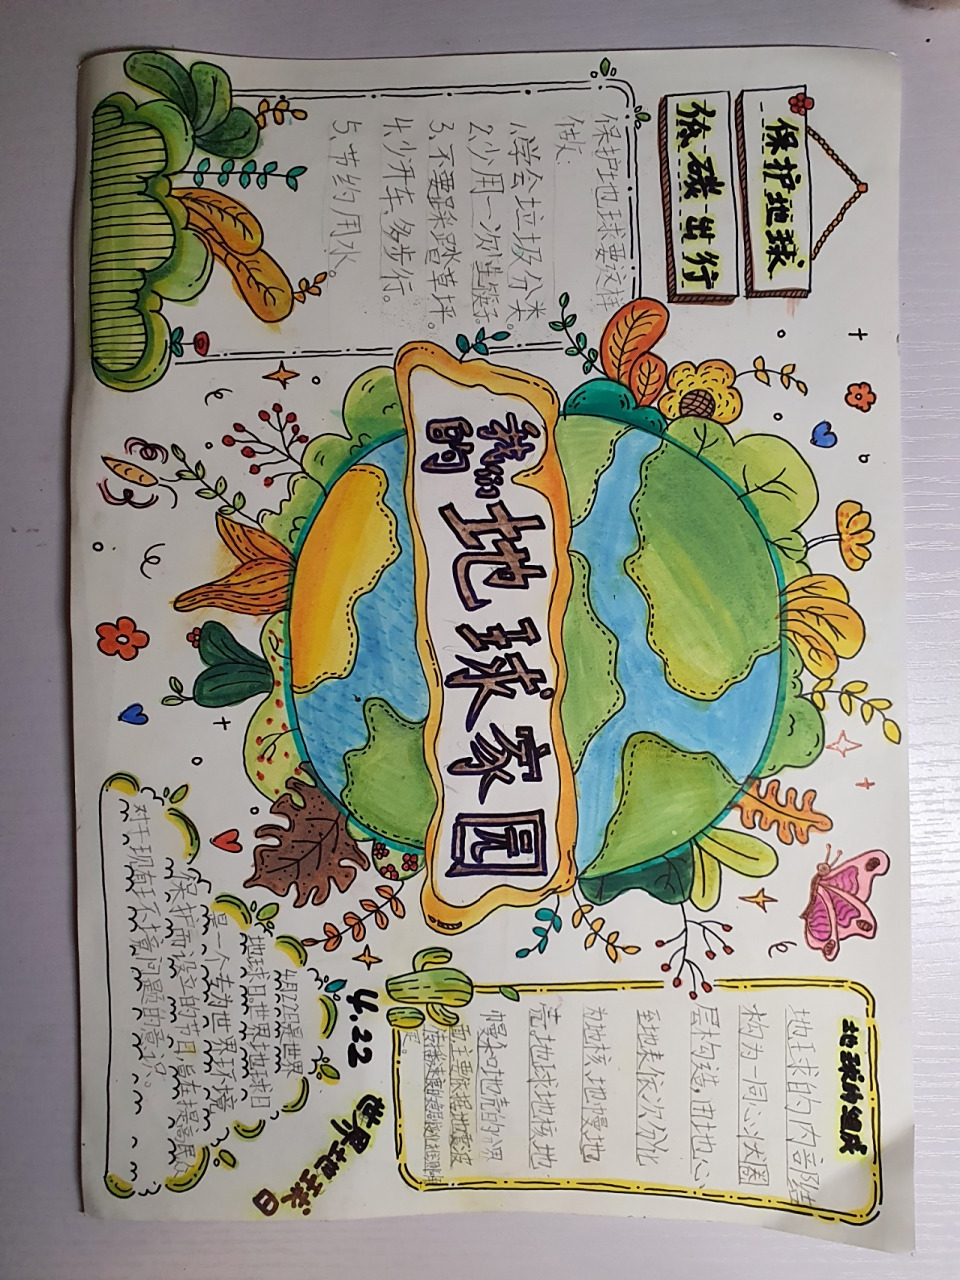 保护地球
低碳出行
保护地球要这样
做：
1.学会垃圾分类。
2.少用一次性筷子。
3.不要踩踏草坪。
4.少开车,多步行。
5.节约用水。
我们的
地球家园
地球的组成
地球的内部结
构为一同心状圈
层构造,由地心
至地表依次分化
为地核、地幔、地
壳。地球地核、地
幔和地壳的分界
面,主要依据地震波
4.22
世界地球日
4月22日是世界
地球日,世界地球日
是一个专为世界环境
保护而设立的节日,旨在提高民众
对于现有环境问题的意识。